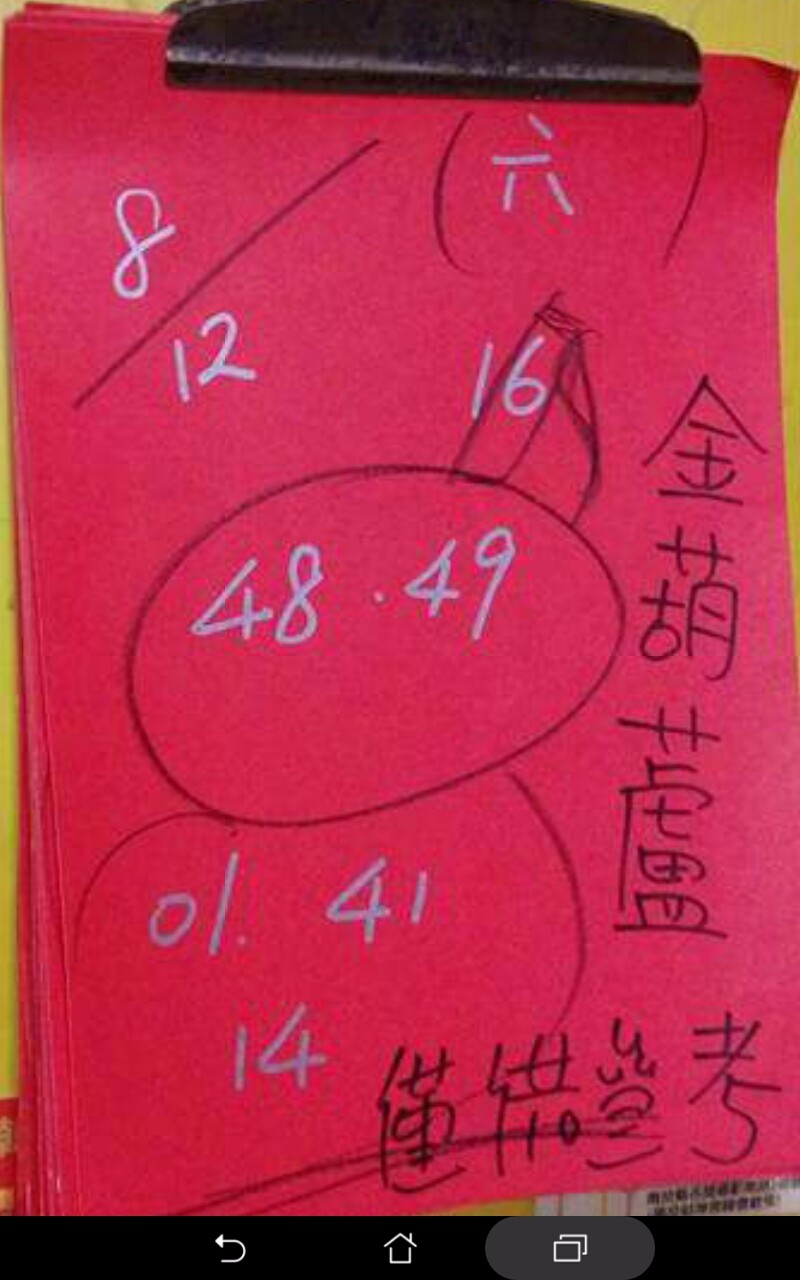 8/12
(六)
16
48.49
01. 41
14
金葫蘆
僅供參考